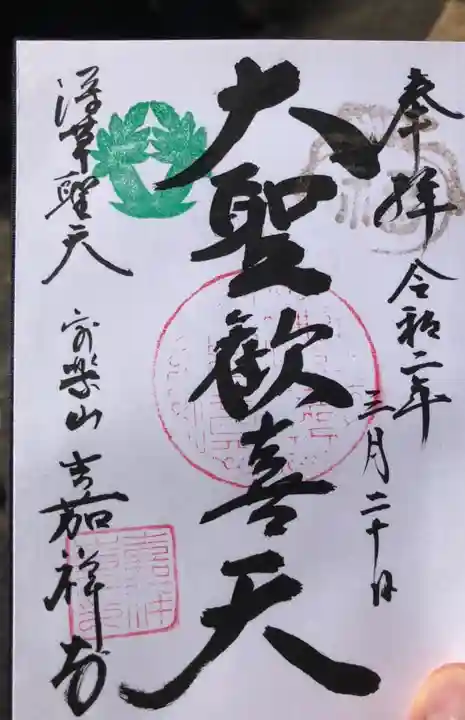 奉拝
令和二年
三月二十日
大聖歓喜天
深草聖天
安楽山 吉
嘉祥寺